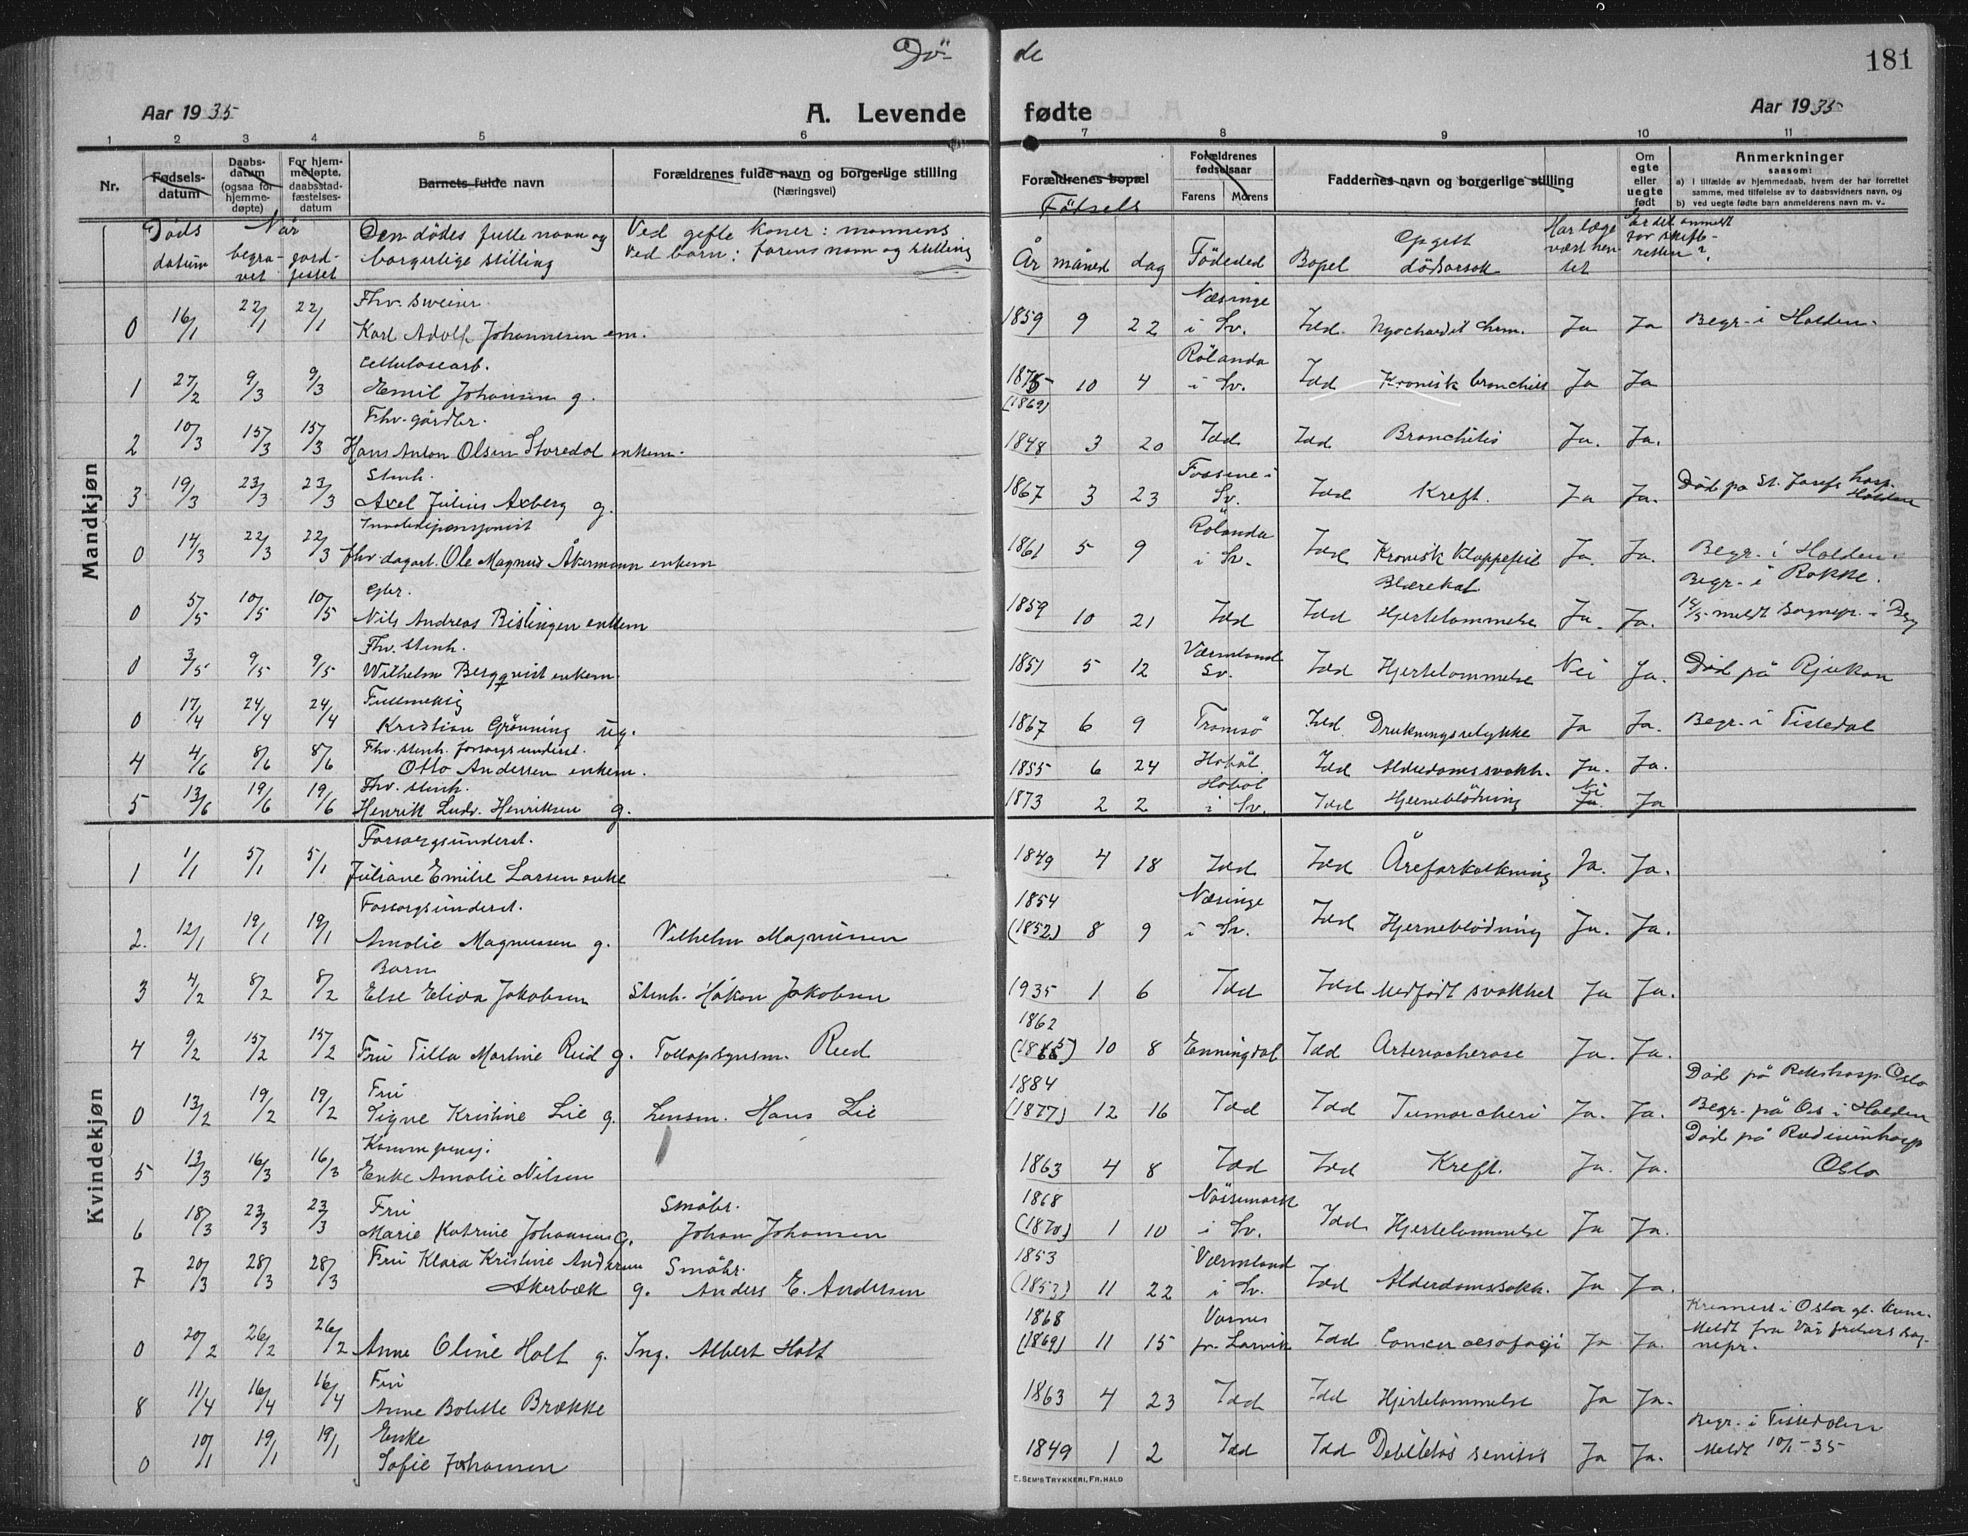 Dö-
de
181
Aar 1935
A. Levende
fødte
Aar 1935
1 2 3 4 5 6 7 8 9 10 11
Nr.
Fødsels-
datum
Daabs-
datum
(ogsaa for
hjemme-
døpte)
For hjem-
medøpte,
daabsstad-
fæstelses-
datum
Barnets fulde navn
Forældrenes fulde navn og borgerlige stilling
(Næringsvei)
Forældrenes bopæl
Forældrenes
fødselsaar
Farens Morens
Faddernes navn og borgerlige stilling
Om
egte
eller
uegte
født
Anmerkninger
saasom:
a) I tilfælde av hjemmedaab, hvem der har forrettet
samme, med tilføielse av to daabsvidners navn, og
b) ved uegte fødte barn anmelderens navn m. v.
Döds
datum
Når
begra-
vet
jord-
festet
Den dödes fulle navn og
borgerlige stilling
Ved gifte koner: mannens
Ved barn: farens navn og stilling
Födsels
År måned dag
Födested
Bopel
Opgitt
dödsårsak
Har læge
vært hen-
tet
Er det anmeldt
for skifte-
retten?
Mandkjøn
Fhv. sveiser
0 16/1 22/1 22/1 Karl Adolf Johannesen em. 1859 9 22 Næsinge i Sv. Idd. Myocardit chron. Ja Ja Begr. i Halden.
Cellulosearb.
1 27/2 9/3 9/3 Emil Johansen g. 1875 (1869) 10 4 Rölanda i Sv. Idd Kronisk bronchitt Ja Ja
Fhv. gårdbr.
2 10/3 15/3 15/3 Hans Anton Olsen Storedal enkem. 1848 3 20 Idd Idd Bronchitis Ja. Ja.
Stenh.
3 19/3 23/3 23/3 Axel Julius Axberg g. 1867 3 23 Sv. Idd Kreft. Ja Ja. Död på St. Josefs hosp. Halden
Invalidepensjonist
0 14/3 22/3 22/3 fhv. dagarb. Ole Magnus Åkermann enkem 1861 5 9 Rölanda i Sv. Idd Kronisk klappefeil Ja. Ja. Begr. i Halden.
Gbr.
0 5/5 10/5 10/5 Nils Andreas Bislingen enkem 1859 10 21 Idd Idd Blærekat Hjertelammelse Ja. Ja. Begr. i Rokke.
meldt Sognepr. i Berg
Fhv. stenh.
0 3/5 9/5 9/5 Wilhelm Bergqvist enkem. 1851 5 12 Værmland Sv. Idd Hjertelammelse Nei Ja. Död på Rjukan
Fullmektig
0 17/4 24/4 24/4 Kristian Grönning ug. 1867 6 9 Tromsö Idd. Drukningsulykke Ja Ja. Begr. i Tistedal
Fhv. stenh. forsorgsunderst.
4 4/6 8/6 8/6 Otto Andersen enkem. 1855 6 24 Hoböl Idd Alderdomssvakh. Ja. Ja.
Fhv. stenh.
5 13/6 19/6 19/6 Henrik Ludv. Henriksen g. 1873 2 2 Höbol i Sv. Idd Hjerneblödning Nei Ja. Ja
Kvindekjøn
Forsorgsunderst.
1 1/1 5/1 5/1 Juliane Emilie Larsen enke 1849 4 18 Idd Idd Åreforkalkning Ja. Ja.
Forsorgsunderst.
2. 12/1 19/1 19/1 Amalie Magnussen g. Vilhelm Magnussen 1854 (1852) 8 9 Næsinge i Sv. Idd Hjerneblödning Ja. Ja.
Barn
3 4/2 8/2 8/2 Else Elida Jakobsen Stenh. Håkon Jakobsen 1935 1 6 Idd Idd Medfödt svakhet Ja Ja.
4 9/2 15/2 15/2 Fru Tilla Martine Ried g. Tollopsynsm. Ried 1862 10 8 Enningdal Idd Arteriosclerose Ja. Ja.
Fru
0 13/2 19/2 19/2 Signe Kristine Lie g. Lensm. Hans Lie 1884 (1877) 12 16 Idd Idd Tumor cheri Ja. Ja. Död på Rikshosp. Oslo
Begr. på Os i Halden
Kommpensj.
5 13/3 16/3 16/3 Enke Amalie Nilsen 1863 4 8 Idd Idd Kreft. Ja. Ja. Död på Radiumhosp Oslo
Fru
6 18/3 23/3 23/3 Marie Katrine Johansen g. Småbr. Johan Johansen 1868 (1870) 1 10 Nössemark i Sv. Idd Hjertelammelse Ja Ja.
7 20/3 28/3 28/3 Fru Klara Kristine Andersen Akerbæk g. Småbr. Anders E. Andersen 1853 (1853) 11 22 Værmland i Sv. Idd Alderdomssvakh. Ja Ja.
0 20/2 26/2 26/2 Anne Oline Holt g. Ing. Albert Holt 1868 (1869) 11 15 Varnes pr. Larvik Idd Cancer oesofagi Ja Ja. Kremert i Oslo gl. krem.
Meldt fra Vår frelsers sog-
nepr.
Fru
8 11/4 16/4 16/4 Anne Bolette Brække 1863 4 23 Idd Idd Hjertelammelse Ja Ja.
Enke
0 10/1 19/1 19/1 Sofie Johansen 1849 1 2 Idd Idd Debilitas senilis Ja Ja. Begr. i Tistedalen
Meldt 10/1-35
E. SEM'S TRYKKERI, FR.HALD